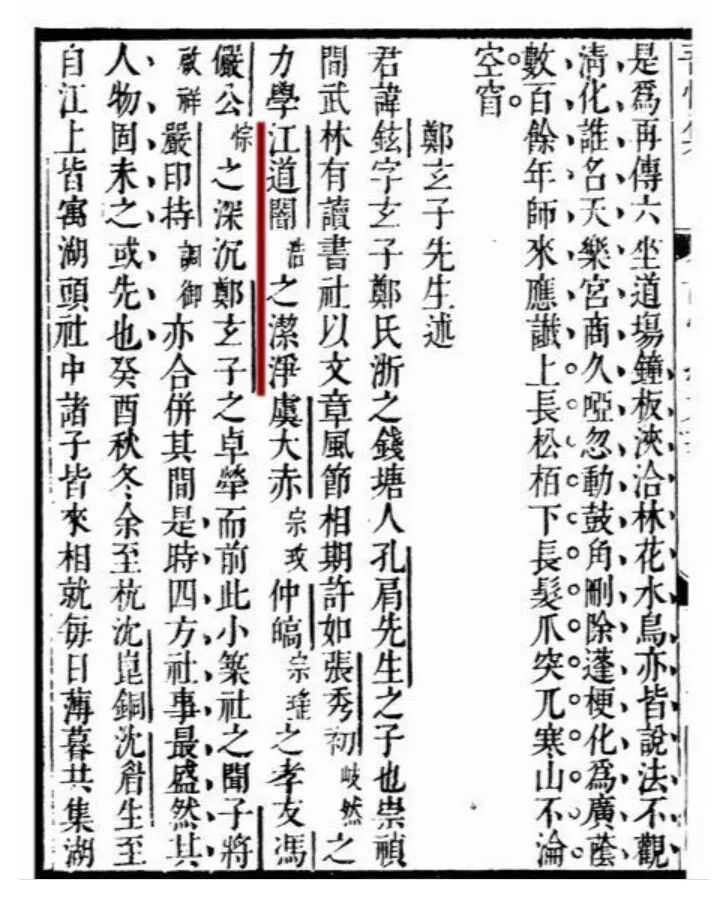 是為再傳六坐道場鐘板浹洽林花水鳥亦皆說法不觀
淸化誰名天樂宮商久啞忽動鼓角刪除蓬梗化為廣蔭
數百餘年師來應讖上長松栢下長髮爪突兀寒山不淪
空窅
鄭玄子先生述
君諱鉉字玄子鄭氏浙之錢塘人孔肩先生之子也崇禎
間武林有讀書社以文章風節相期許如張秀初岐然之
力學江道闇浩之潔淨虞大赤宗玫仲皜宗瑤之孝友馮
儼公悰之深沉鄭玄子之卓犖而前此小築社之聞子將
啟祥嚴印持調御亦合併其間是時四方社事最盛然其
人物固未之或先也癸酉秋冬余至杭沈崑銅沈眉生至
自江上皆寓湖頭社中諸子皆來相就每日薄暮共集湖